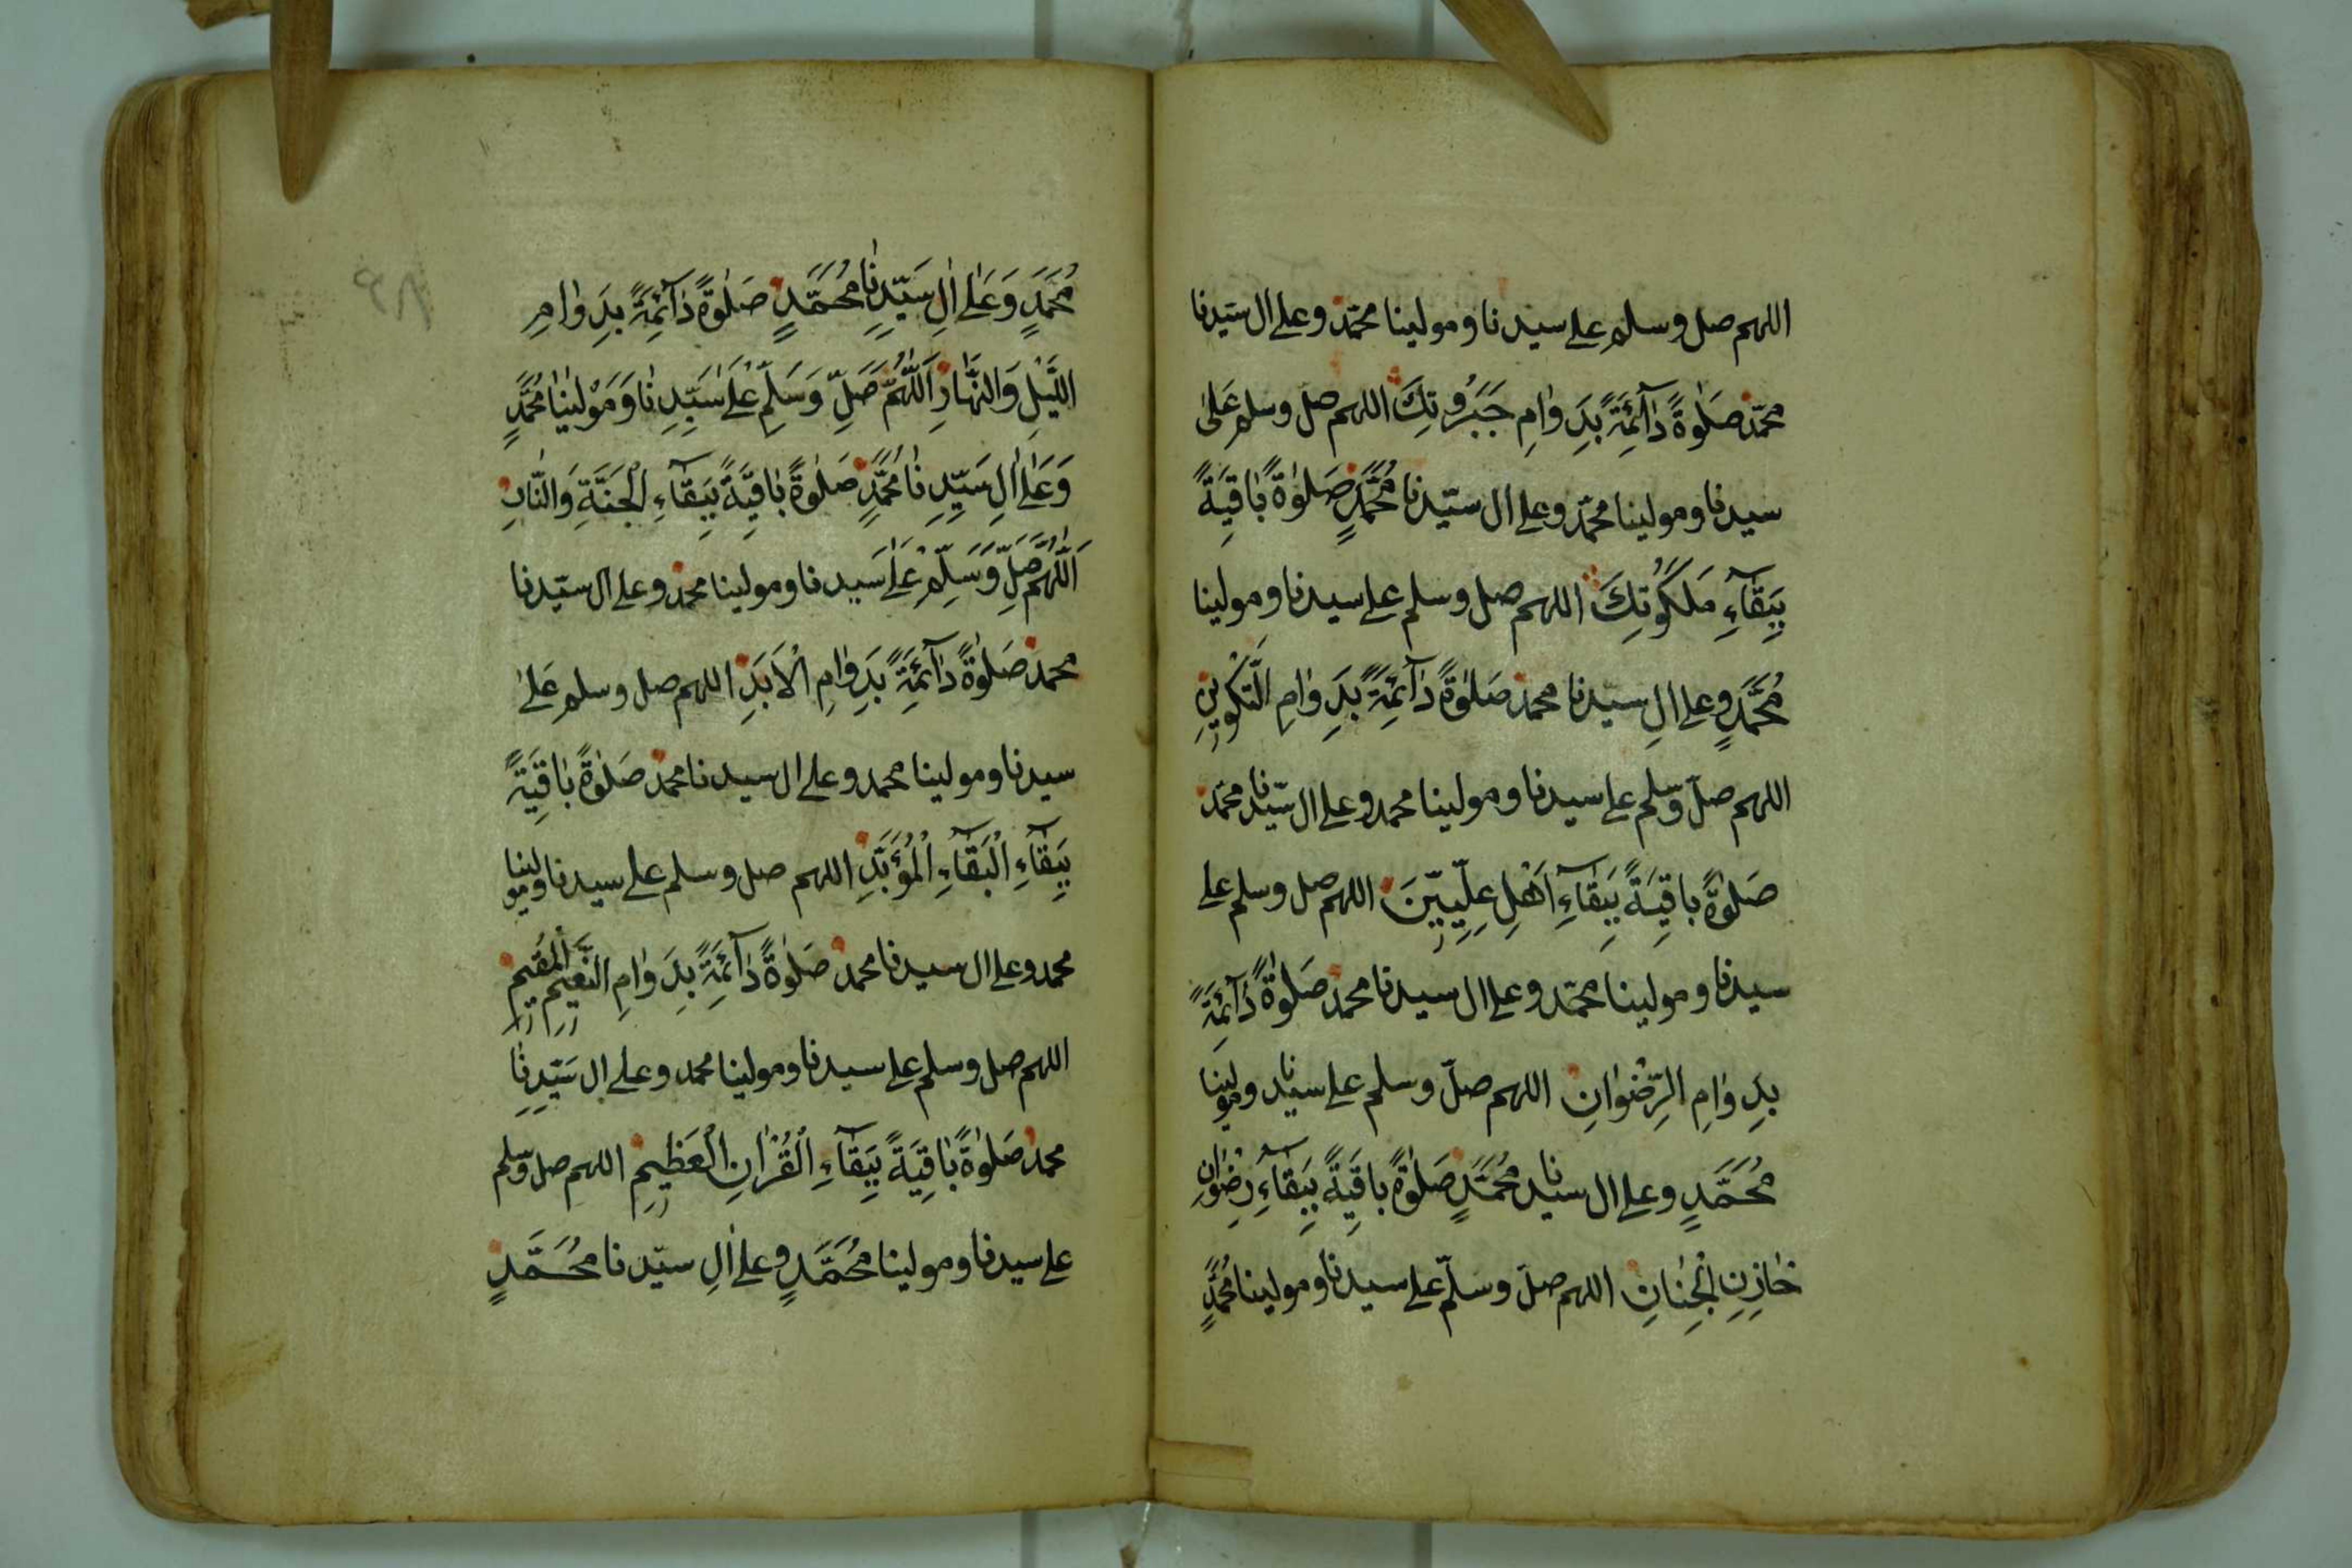 اللهم صل وسلم على سيدنا ومولينا محمّد وعلى ال سيّدنا
محمّد صَلٰوةً دَآئِمَةً بِدَوٰامِ جَبَرُوتِكَ اللهم صل وسلم عَلىٰ
سيدنا ومولينا محمّد وعلى ال سيّدنا مُحَمَّدٍ صَلٰوةً بٰاقِيَةً
بِبَقٰآءِ مَلَكُوتِكَ اللهم صل وسلم على سيدنا ومولينا
مُحَمَّدٍ وعلى الِ سيّدنا محمد صَلٰوةً دٰآئِمَةً بِدَوٰامِ التَّكْوٖينِ
اللهم صلّ وسلم على سيدنا ومولينا محمد وعلى ال سيّدنا محمّد
صَلٰوةً باقِيَةً بِبَقٰآءِ اَهْلِ عِلِّيّٖينَ اللهم صل وسلم على
سيدنا ومولينا محمّد وعلى ال سيدنا محمد صَلٰوةً دَآئِمَةً
بِدَوٰامِ الرِّضْوٰانِ اللهم صلّ وسلم على سيدنا ومولينا
مُحَمَّدٍ وعلى ال سيدنا مُحَمَّدٍ صَلٰوةً باقِيَةً بِبَقٰآءِ رِضْوٰانِ
خٰازِنِ الْجِنٰانِ اللهم صلّ وسلّم على سيدنا ومولينا مُحَمَّدٍ
مُحَمَّدٍ وَعَلٰى اٰلِ سَيِّدِنٰا مُحَمَّدٍ صَلٰوةً دٰآئِمَةً بِدَوٰامِ
اللَّيْلِ وَالنَّهٰارِ اَللّٰهُمَّ صَلِّ وَسَلِّمْ عَلٰى سَيِّدِنٰا وَمَوْلٰينٰا مُحَمَّدٍ
وَعَلٰى اٰلِ سَيِّدِنٰا مُحَمَّدٍ صَلٰوةً بٰاقِيَةً بِبَقٰآءِ الْجَنَّةِ وَالنّٰارِ
اَللّٰهُمَّ صَلِّ وَسَلِّمْ عَلٰى سَيدنا ومولينا محمد وعلى ال سيّدنا
محمد صَلٰوةً دٰآئِمَةً بِدَوٰامِ الْاَبَدِ اللهم صل وسلم عَلىٰ
سيدنا ومولينا محمد وعلى ال سيدنا محمد صَلٰوةً بٰاقِيَةً
بِبَقٰآءِ الْبَقٰآءِ الْمُؤَبَّدِ اللهم صل وسلم على سيدنا ومولينا
محمد وعلى ال سيدنا محمد صَلٰوةً دٰآئِمَةً بِدَوٰامِ النَّعٖيمِ الْمُقٖيمِ
اللهم صل وسلم على سيدنا ومولينا محمد وعلى ال سَيّدِنٰا
محمد صَلٰوةً بٰاقِيَةً بِبَقٰآءِ الْقُرْاٰنِ الْعَظٖيمِ اللهم صل وسلم
على سيدنا ومولينا مُحَمَّدٍ وعلى اٰلِ سيّدنا مُحَمَّدٍ